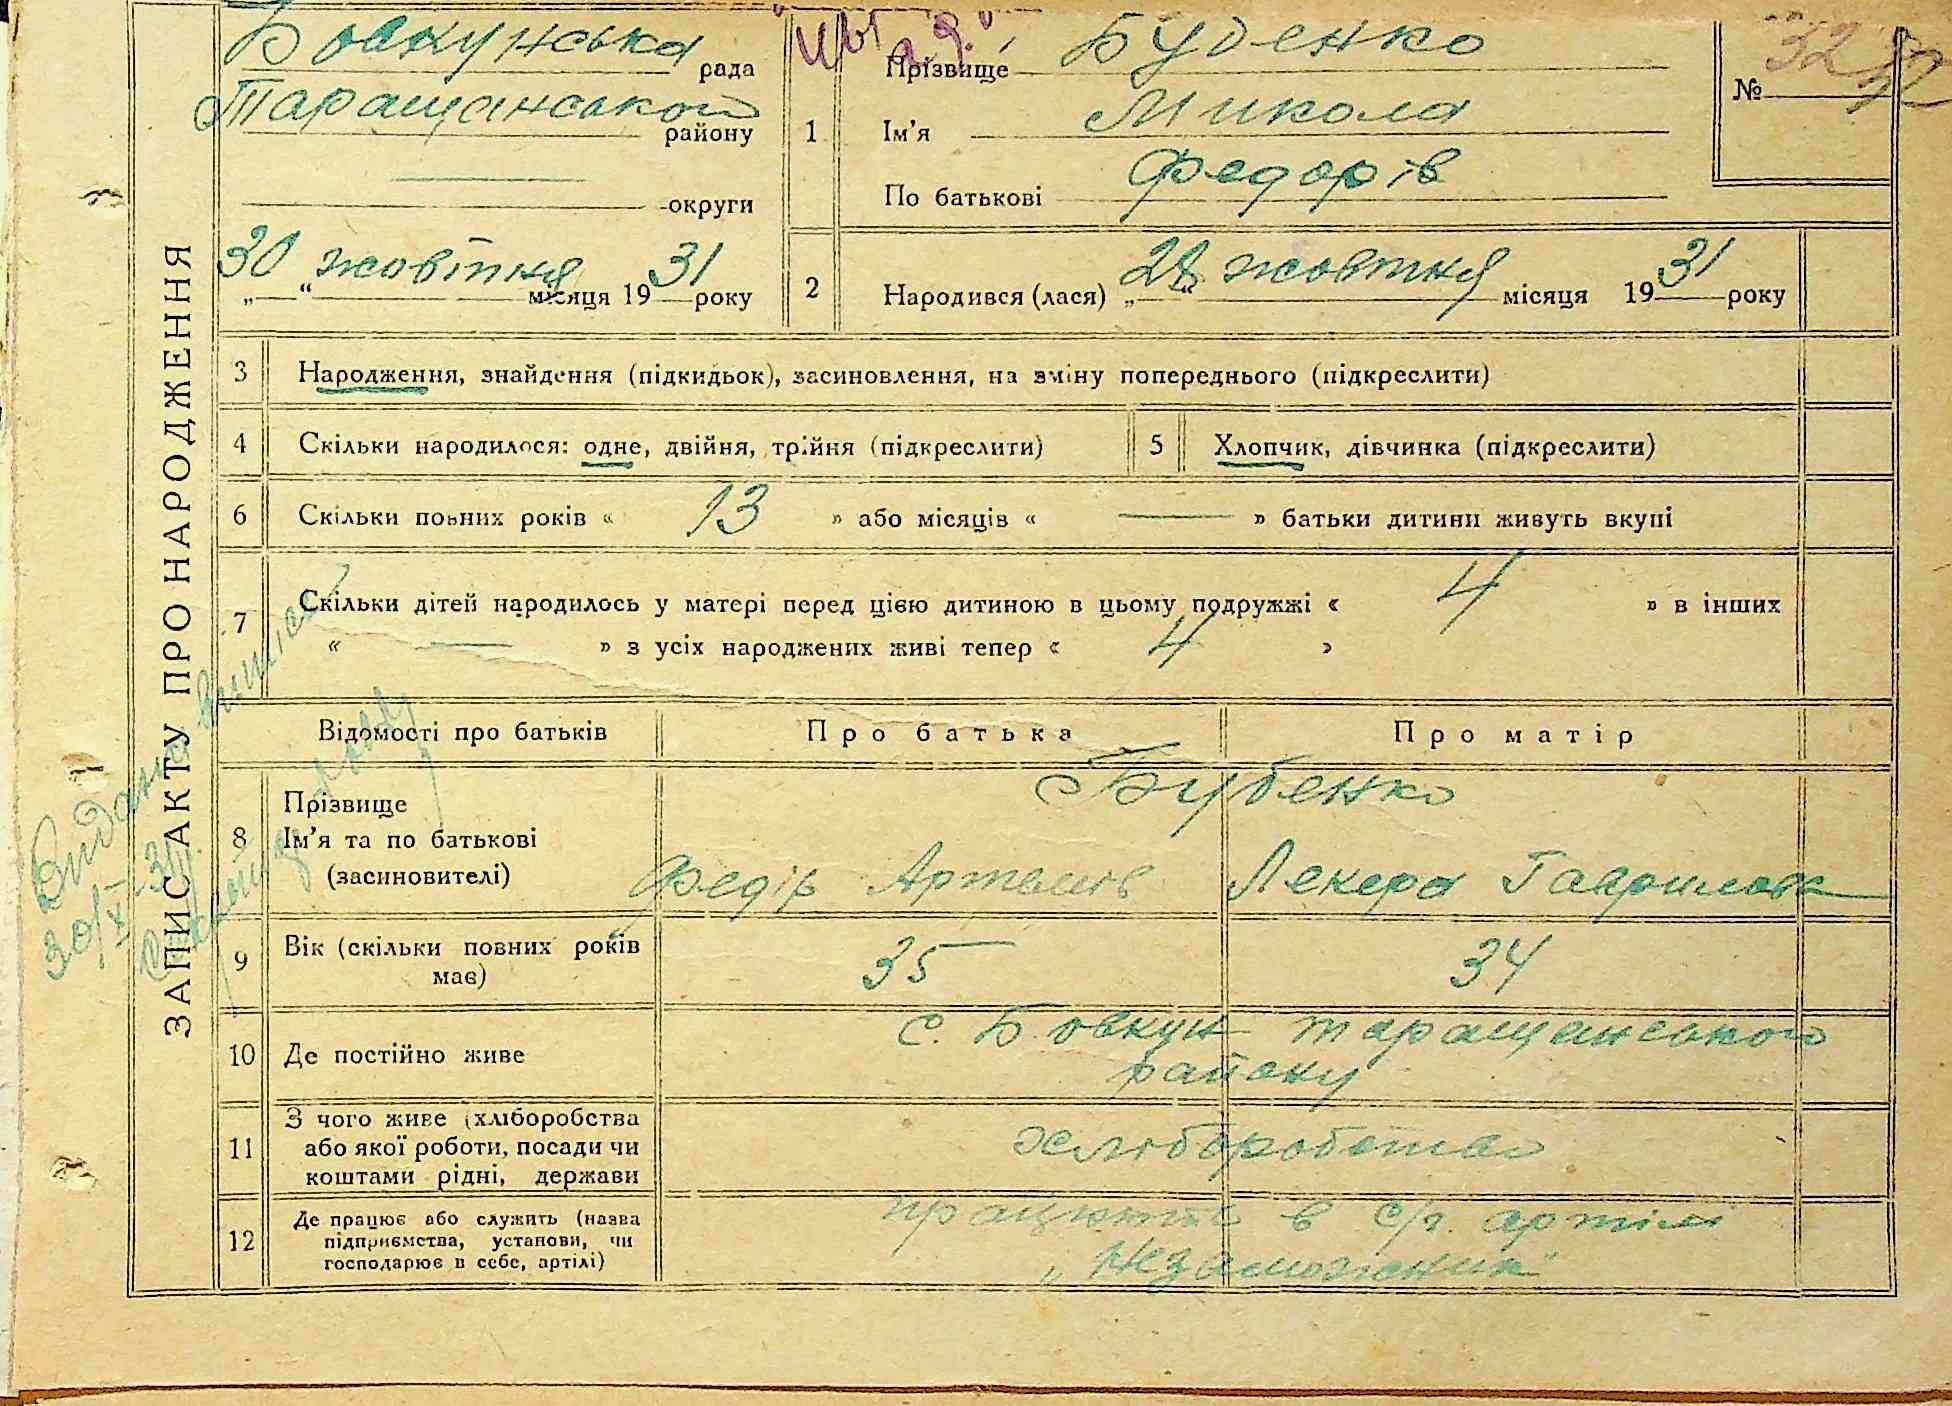 ЗАПИС АКТУ ПРО НАРОДЖЕННЯ
Бовкунська рада
Таращанського району
округи
30 „—“ жовтня місяця 1931 року
1 Прізвище Буденко
Ім'я Микола
По батькові Федорів
№ 32
2 Народився (лася) „28“ жовтня місяця 1931 року
3 Народження, знайдення (підкидьок), засиновлення, на зміну попереднього (підкреслити)
4 Скільки народилося: одне, двійня, трійня (підкреслити) 5 Хлопчик, дівчинка (підкреслити)
6 Скільки повних років « 13 » або місяців « — » батьки дитини живуть вкупі
7 Скільки дітей народилось у матері перед цією дитиною в цьому подружжі « 4 » в інших
« — » з усіх народжених живі тепер « 4 »
Відомості про батьків Про батька Про матір
8 Прізвище Бубенко
Ім'я та по батькові
(засиновителі) Федір Артемів Лекера Гаврилова
9 Вік (скільки повних років 35 34
має)
10 Де постійно живе с. Бовкун таращанського
району
11 З чого живе (хліборобства
або якої роботи, посади чи хліборобства
коштами рідні, держави
12 Де працює або служить (назва працюють в с/г. артілі
підприємства, установи, чи
господарює в себе, артілі) „Незаможник“
Видано виписку
30/X-31